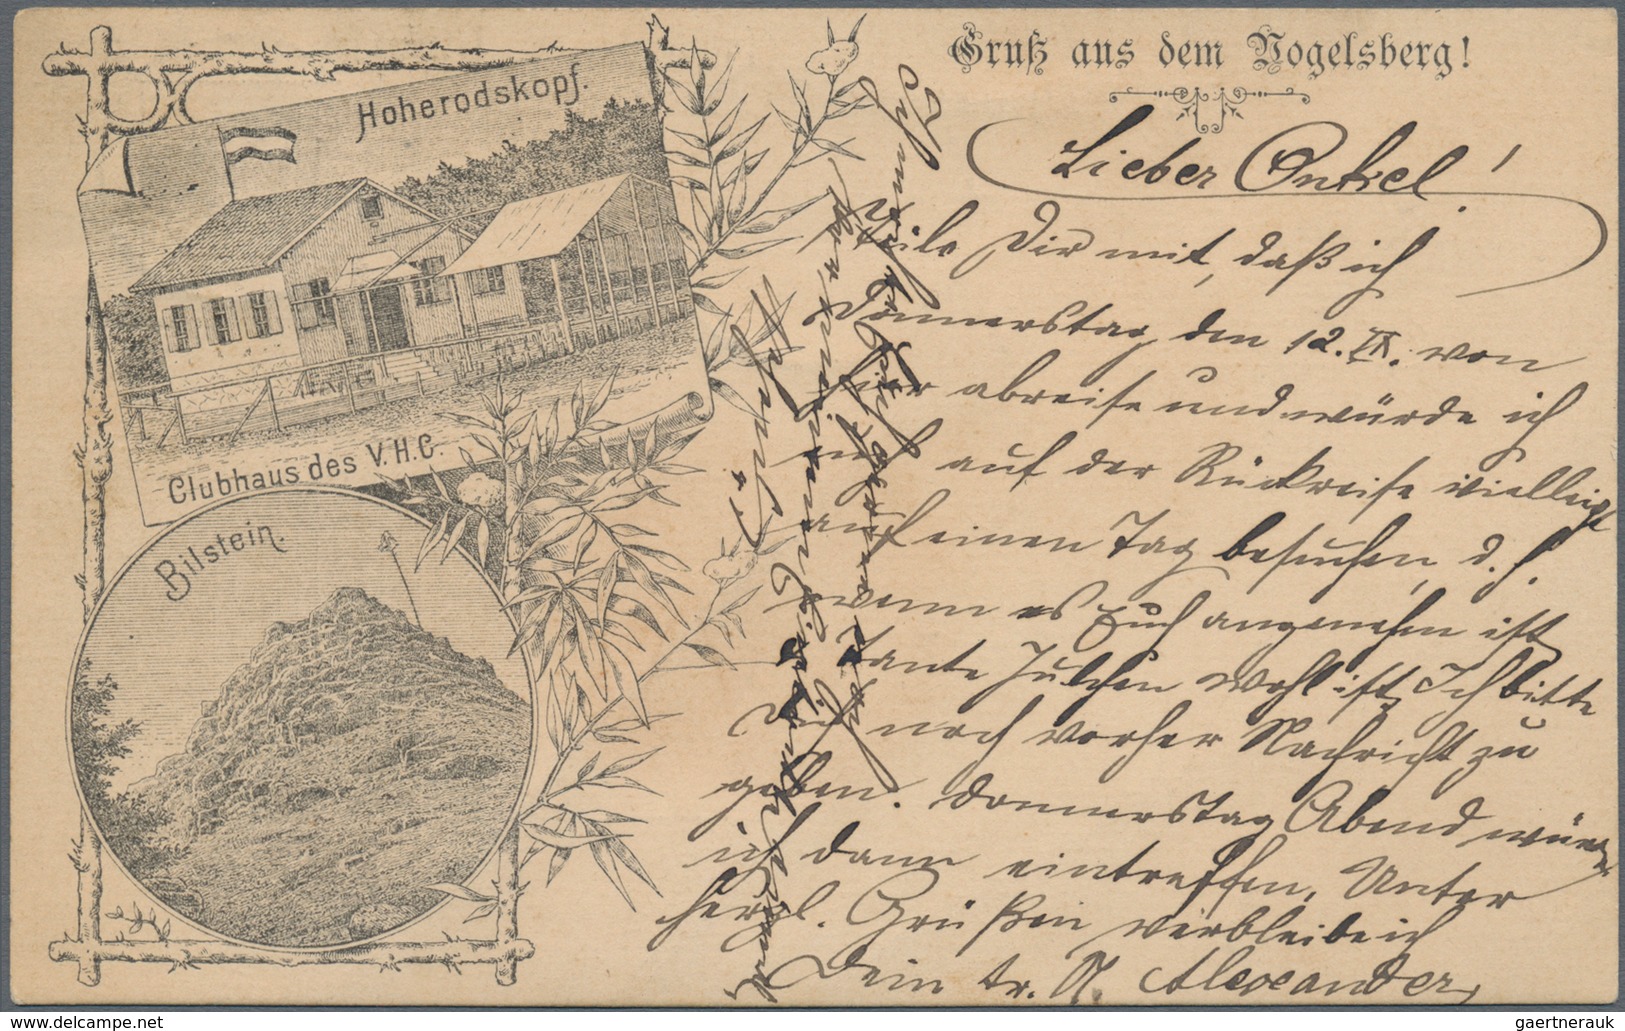 Gruß aus dem Vogelsberg!
Hoherodskopf.
Clubhaus des V.H.C.
Bilstein.
Lieber Onkel!
Teile Dir mit, daß ich
Donnerstag den 12. IX. von
hier abreise und würde ich
Euch auf der Rückreise vielleicht
auf einen Tag besuchen, d. h.
wenn es Euch angenehm ist
Tante Julchen wohl ist, Ich bitte
Dich noch vorher Nachricht zu
geben. Donnerstag Abend würde
ich dann eintreffen, Unter
herzl. Grüßen verbleibe ich
Dein tr. N. Alexander,
gaertnerauk
delcampe.net